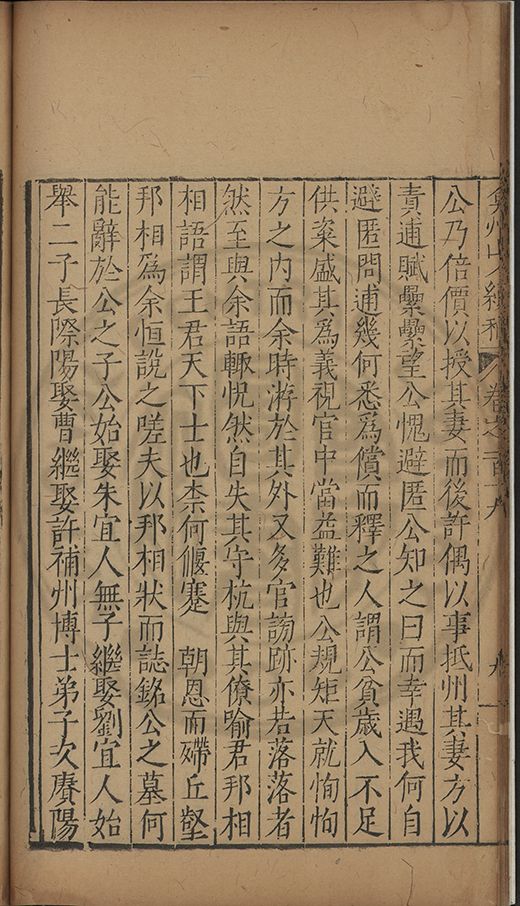 弇州山人續稿 卷之一百十九 九
公乃倍價以授其妻而後許偶以事抵州其妻方以
責逋賦纍纍望公愧避匿公知之曰而幸遇我何自
避匿問逋幾何悉為償而釋之人謂公貧歲入不足
供粢盛其為義視官中當益難也公規矩天就恂恂
方之內而余時游於其外又多官訪跡亦若落落者
然至與余語輙怳然自失其守杭與其僚喻君邦相
相語謂王君天下士也柰何偃蹇 朝恩而殢丘壑
邦相為余恒說之嗟夫以邦相狀而誌銘公之墓何
能辭於公之子公始娶朱宜人無子繼娶劉宜人始
舉二子長際陽娶曹繼娶許補州博士弟子次賡陽